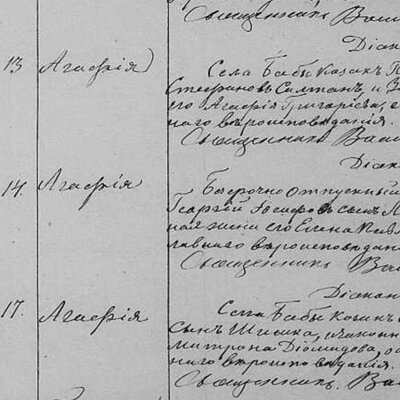 Священникъ Васи
Діакон
13 Агафія Села Бабы Козакъ
Стефановъ Салтанъ, и За
его Агафія Григоріева,
наго вѣроисповѣданія.
Священникъ Васи
Діакон
14. Агафія Безсрочно отпускный
Георгій Іосифовъ сынъ
ная жена его Елена
лавнаго вѣроисповѣдан
Священникъ Ва
Діакон
17. Агафія Села Бабы Козакъ
сынъ и законн
Митрона Діомидова,
наго вѣроисповѣданія.
Священникъ Вас